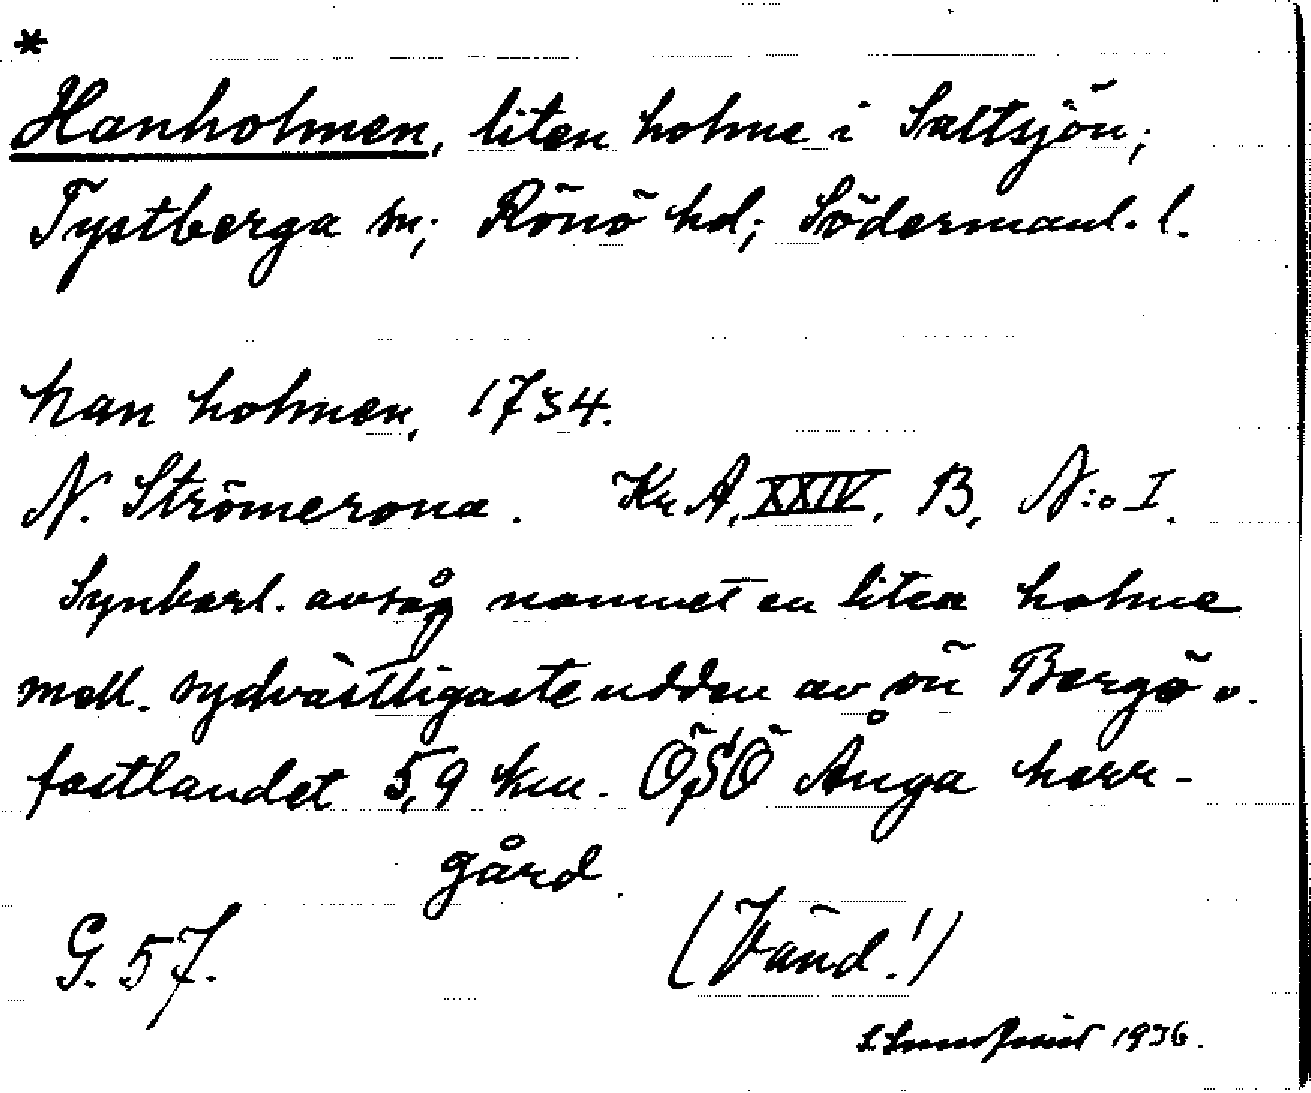 *
Hanholmen, liten holme i Saltsjön;
Tystberga sn; Rönö hd; Södermanl. l.
han holmen, 1734.
N. Strömcrona. Kr A, XXIV, B, N:o I.
Synbarl. avsåg namnet en liten holme
mell. sydvästligaste udden av ön Bergö o.
fastlandet 5,9 km. ÖSÖ Ånga herr-
gård.
G. 57. (Vänd!)
1936.